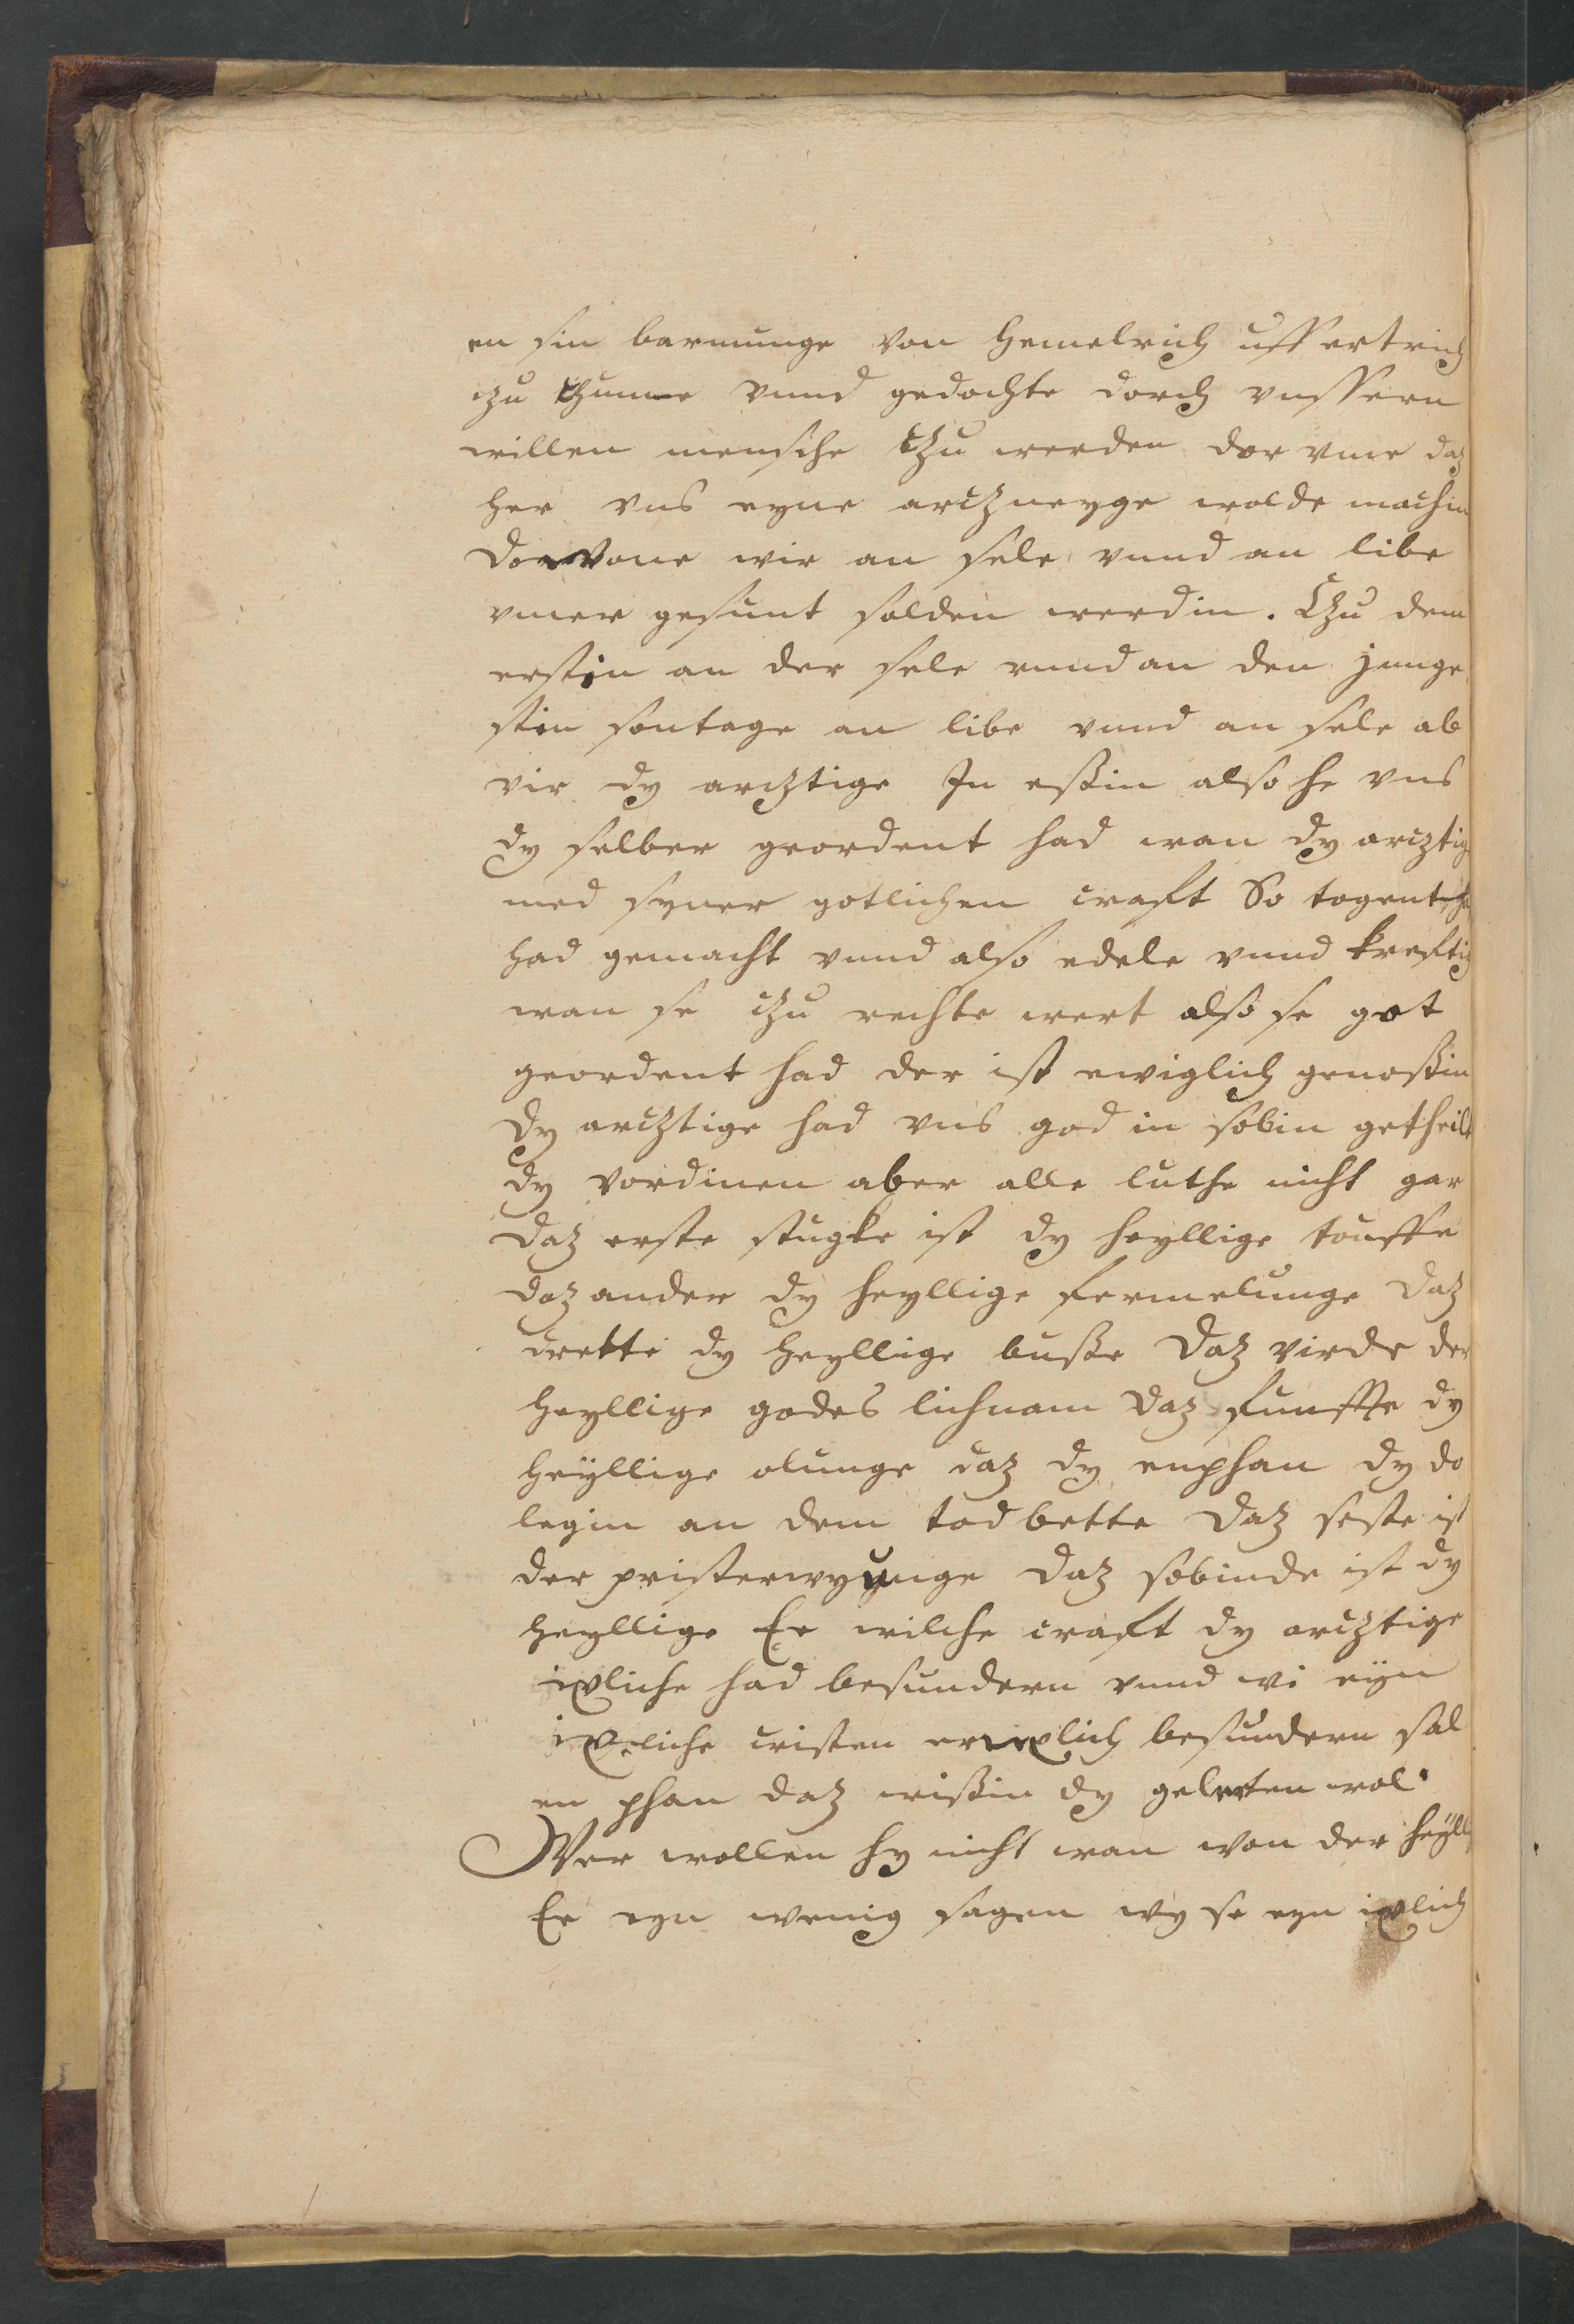 en sin barmunge von hemelrich uff ertrich
czu kumme vnnd gedochte dorch vnssern
willen mensche tzu werden dor vme daz
her vns eyne arczneyge wolde machin
dor vone wir an sele vnnd an libe
vmer gesunt solden werdin. Czu dem
erstin an der sele vnnd an den junge
stin sontage an libe vnnd an sele ab
wir dy arcztige In essin also he vns
dy selber geordent had wan dy arcztig
med syner gotlichen craft So togent
had gemacht vnnd also edele vnnd kreftig
wan se czu rechte wert also se got
geordent had der ist ewiglich genossin
Dy arcztige had vns god in sobin getheilt
dy vordinen aber alle luthe nicht gar
Daz erste stugke ist dy heyllige touffe
Daz ander dy heyllige fermelunge Daz
dritte dy heyllige busse Daz virde der
heyllige godes lichnam Daz funffte dy
heyllige olunge daz dy enphan dy do
legin an dem tod bette Daz seste ist
der pristerwyunge Daz sobinde ist dy
heyllige Ee wilche craft dy arcztige
ixliche had besundern vnnd wi eyn
ixliche cristen ixlich besundern sal
en phan daz wissin dy gelerten wol
Wer wollen hy nicht wan von der heyll
Ee eyn wenig sagen wy se eyn ixlich